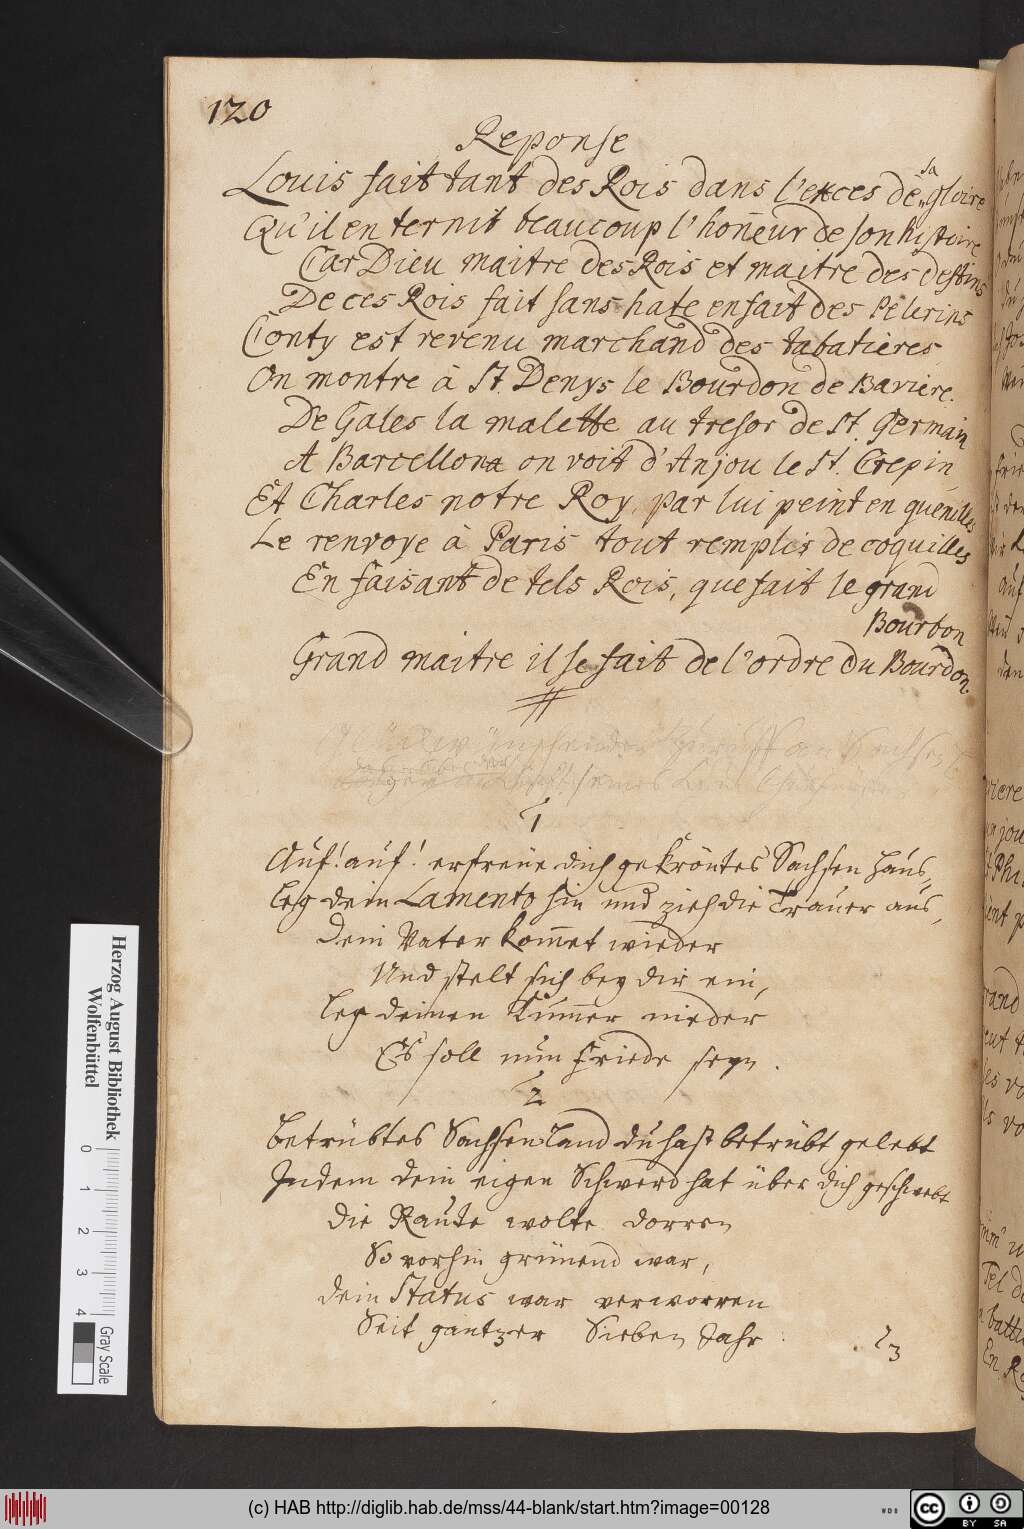 120
Reponse
Louis fait tant des Rois dans l'exces de sa gloire
Qu'il en ternit beaucoup l'hoñeur de son histoire
Car Dieu maitre des Rois et maitre des destins
De ces Rois fait sans hate en fait des Pelerins
Conty est revenu marchand des tabatieres
On montre à St. Denys le Bourdon de Baviere.
De Gales la malette au tresor de St. Germain
A Barcellona on voit d'Anjou le St. Crepin
Et Charles notre Roy, par lui peint en quenilles
Le renvoye à Paris tout remplis de coquilles
En faisant de tels Rois, que fait le grand
Bourbon
Grand maitre il se fait de l'ordre du Bourdon.
1
Auf! auf! erfreüe dich gekröntes Sachsen Haus,
Leg dein Lamento hin und zieh die Trauer aus,
Dein Vater kom̄et wieder
Und stelt sich bey dir ein,
Leg deinen Kum̄er nieder
Es soll nun Friede seyn.
2
Betrübtes Sachsen Land du hast betrübt gelebt
Indem dein eigen Schwerd hat über dich geschwebt
Die Raute wolte dorren
So vorhin grünend war,
Dein Status war verworren
Seit gantzer Sieben Jahr
3
Herzog August Bibliothek
Wolfenbüttel
0 1 2 3 4
Gray Scale
(c) HAB http://diglib.hab.de/mss/44-blank/start.htm?image=00128
WDB
cc BY SA